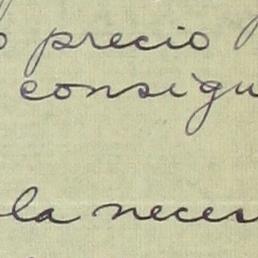 o precio
consigu
la neces